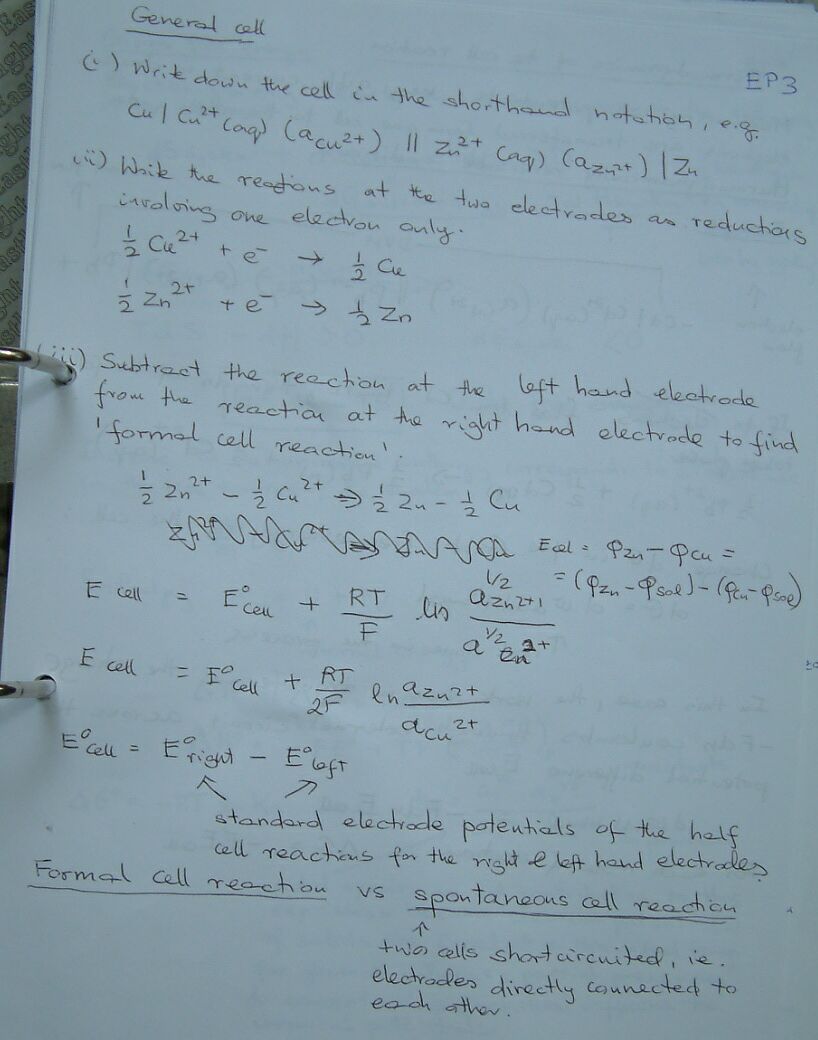 General cell
EP3
(i) Write down the cell in the shorthand notation, e.g.
Cu | Cu²⁺ (aq) (a_Cu²⁺) || Zn²⁺ (aq) (a_Zn²⁺) | Zn
(ii) Write the reactions at the two electrodes as reductions
involving one electron only.
½ Cu²⁺ + e⁻ → ½ Cu
½ Zn²⁺ + e⁻ → ½ Zn
(iii) Subtract the reaction at the left hand electrode
from the reaction at the right hand electrode to find
'formal cell reaction'.
½ Zn²⁺ - ½ Cu²⁺ ⇒ ½ Zn - ½ Cu
Ecell = φZn - φCu =
= (φZn - φSol) - (φCu - φSol)
E cell = E°cell + RT/F ln a^1/2 Zn²⁺ / a^1/2 Cu²⁺
E cell = E°cell + RT/2F ln aZn²⁺ / aCu²⁺
E°cell = E°right - E°left
standard electrode potentials of the half
cell reactions for the right & left hand electrodes
Formal cell reaction vs spontaneous cell reaction
two cells shortcircuited, ie.
electrodes directly connected to
each other.